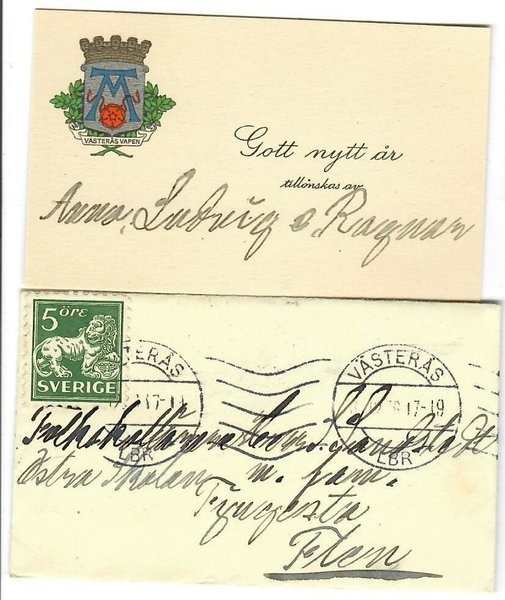 VÄSTERÅS VAPEN
Gott nytt år
tillönskas av
Anna, Ludvig o. Ragnar
5 ÖRE
SVERIGE
VÄSTERÅS
17-19
LBR
VÄSTERÅS
17-19
LBR
Folkskolläraren Herr
Östra Skolan m. fam.
Flen